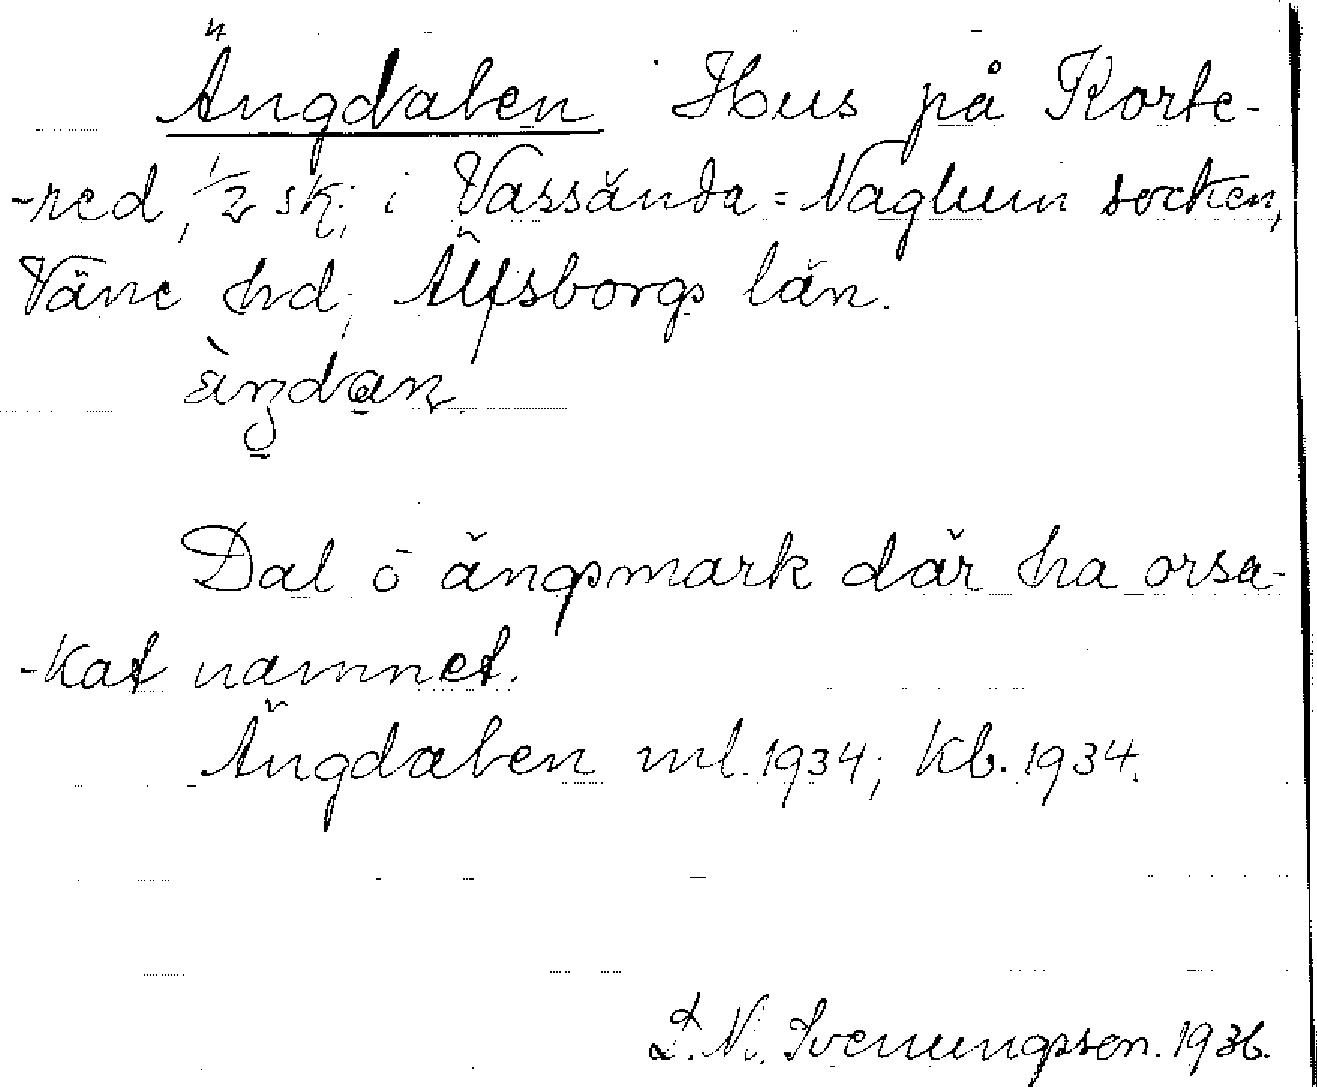 Ängdalen Hus på Korte-
-red, 1/2 sk; i Vassända=Naglum socken,
Väne hd; Älfsborgs län.
Dal o ängsmark där ha orsa-
-kat namnet.
Ängdalen ml. 1934; Kb. 1934.
Svenungsson. 1936.